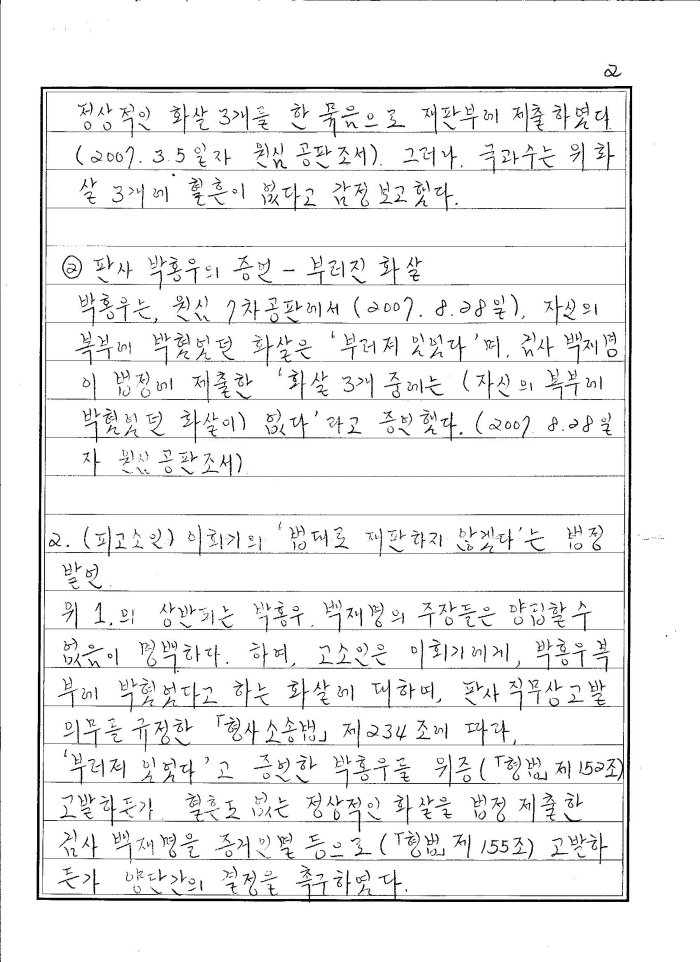 2
정상적인 화살 3개를 한 묶음으로 재판부에 제출하였다
(2007. 3.5일자 원심 공판조서). 그러나, 국과수는 위 화
살 3개에 혈흔이 없다고 감정 보고했다.
② 판사 박홍우의 증언 - 부러진 화살
박홍우는, 원심 7차공판에서 (2007. 8.28일), 자신의
복부에 박혔었던 화살은 '부러져 있었다'며, 검사 백재명
이 법정에 제출한 '화살 3개 중에는 (자신의 복부에
박혔었던 화살이) 없다'라고 증언했다. (2007. 8.28일
자 원심 공판조서)
2. (피고소인) 이회기의 '법대로 재판하지 않겠다'는 법정
발언.
위 1.의 상반되는 박홍우, 백재명의 주장들은 양립할 수
없음이 명백하다. 하여, 고소인은 이회기에게, 박홍우 복
부에 박혔었다고 하는 화살에 대하여, 판사 직무상 고발
의무를 규정한 「형사소송법」 제234조에 따라,
'부러져 있었다'고 증언한 박홍우를 위증(「형법」 제152조)
고발하든가 혈흔도 없는 정상적인 화살을 법정 제출한
검사 백재명을 증거인멸 등으로 (「형법」 제155조) 고발하
든가 양단간의 결정을 촉구하였다.